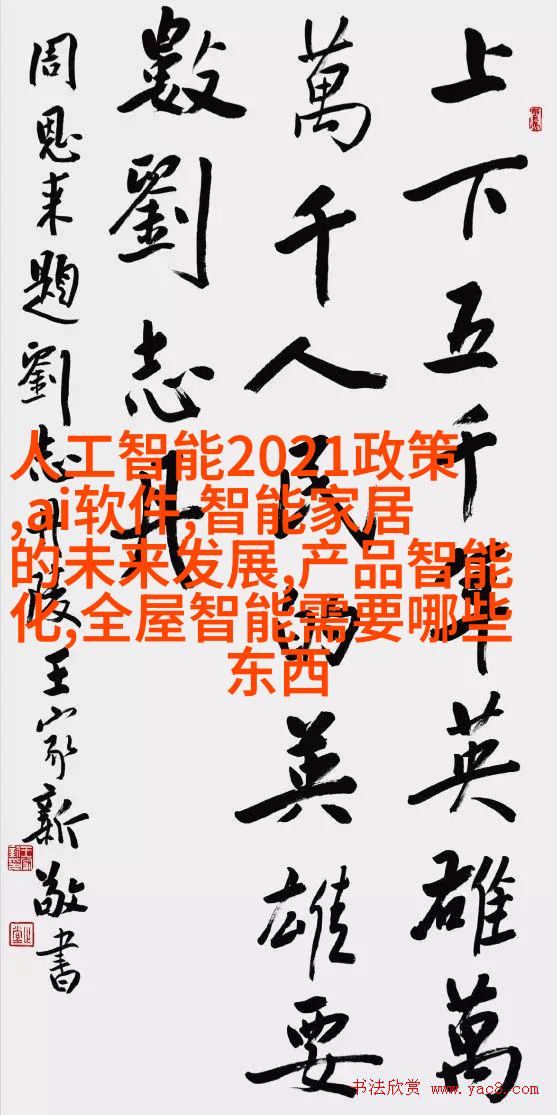 上下五千年英雄萬
萬千人民的英雄要
數劉志丹
周恩来題劉志丹陵王家新敬書
人工智能2021政策
,ai软件,智能家居
的未来发展,产品智能
化,全屋智能需要哪些
东西
书法欣赏 www.yac8.com